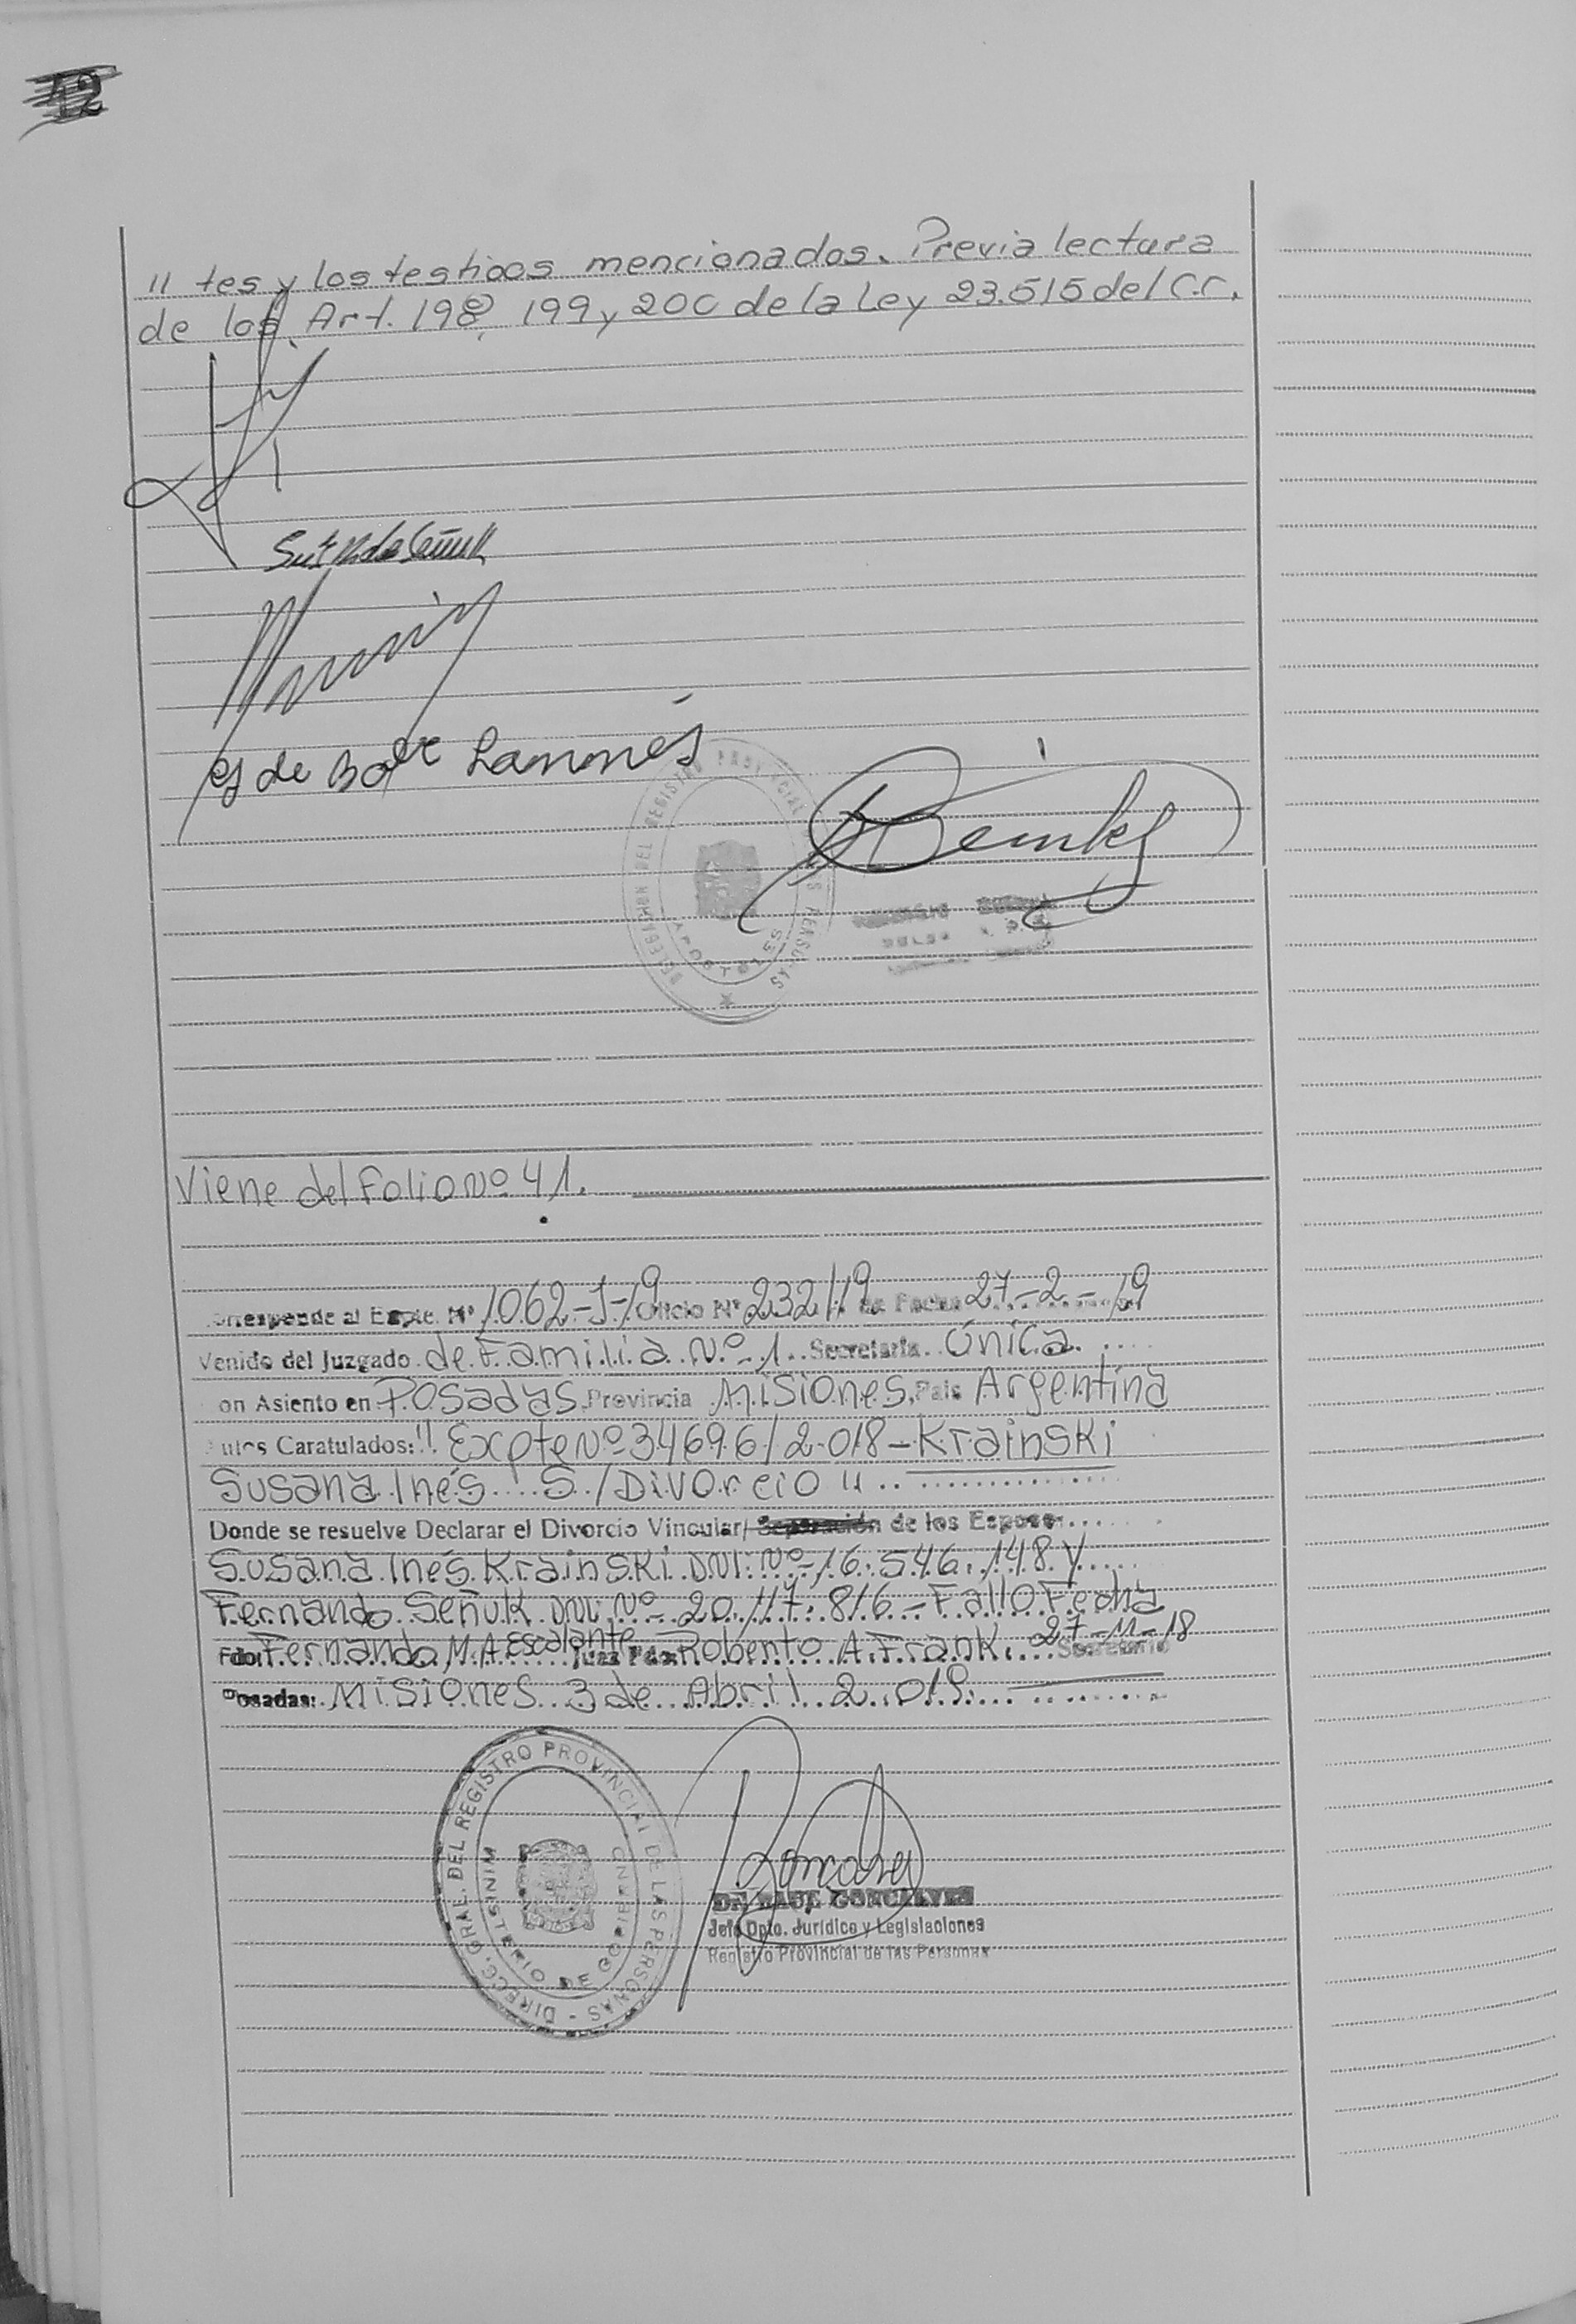 12
// tes y los testigos mencionados. Previa lectura
de los Art. 198, 199 y 200 de la Ley 23.515 del C.C.
DELEGACION DEL REGISTRO PROVINCIAL DE LAS PERSONAS
APOSTOLES
Viene del Folio Nº 41.
orresponde al Expte. Nº 1062-J-19 Oficio Nº 232/19 de Fecha 27-2-19
Venido del Juzgado de Familia Nº 1 Secretaria Única
on Asiento en Posadas Provincia Misiones, Pais Argentina
utos Caratulados: " Expte Nº 34696/2018 - Krainski
Susana Inés S/Divorcio "
Donde se resuelve Declarar el Divorcio Vincular/ Separación de los Esposos
Susana Inés Krainski DNI Nº 16.546.148 y
Fernando Señuk DNI Nº 20.117.816 - Fallo Fecha
27-11-18
Fdo: Fernando M.A Escalante Juez Fdo: Roberto A. Frank. Secretario
Posadas: Misiones 3 de Abril 2.019
DIRECC. GRAL. DEL REGISTRO PROVINCIAL DE LAS PERSONAS -
MINISTERIO DE GOBIERNO
GONCALVES
Jefe Dpto. Jurídico y Legislaciones
Registro Provincial de las Personas